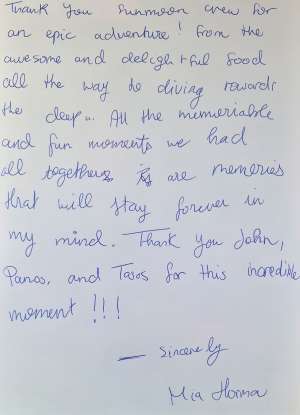 Thank you Sunmoon crew for
an epic adventure! From the
awesome and delightful food
all the way to diving towards
the deep... All the memoriable
and fun moments we had
all together are memories
that will stay forever in
my mind. Thank you John,
Panos, and Tasos for this incredible
moment !!!
— Sincerely
Mia